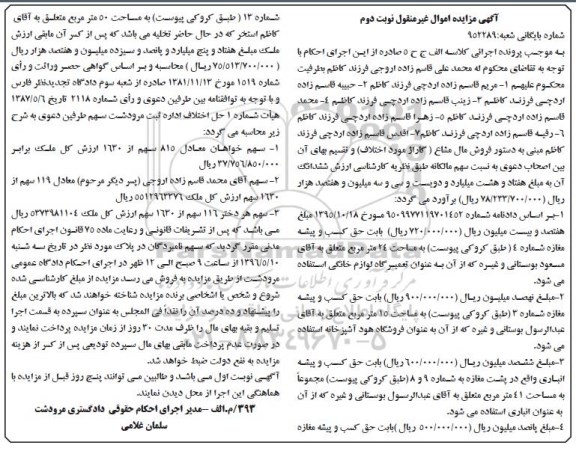 آگهی مزایده اموال غیرمنقول نوبت دوم
شماره بایگانی شعبه:۹۵۲۲۸۹
به موجب پرونده اجرائی کلاسه الف ج ح ۵ صادره از این اجرای احکام با
توجه به تقاضای محکوم له محمد علی قاسم زاده اروجی فرزند کاظم بطرفیت
محکوم علیهم ۱-مریم قاسم زاده اردجی فرزند کاظم ۲- حبیبه قاسم زاده
اردجی فرزند کاظم ۳-زینب قاسم زاده اردجی فرزند کاظم ۴- محمد
قاسم زاده اروجی فرزند کاظم ۵- زهرا قاسم زاده اردجی فرزند کاظم
۶- رقیه قاسم زاده اردجی فرزند کاظم ۷- اقدس قاسم زاده اردجی فرزند
کاظم مبنی به دستور فروش مال مشاع (گاراژ مورد اختلاف) و تقسیم بهای آن
بین اصحاب دعوی به نسبت سهم مالکانه طبق نظریه کارشناسی ارزش ششدانگ
آن به مبلغ هفتاد و هشت میلیارد و دویست و سی و سه میلیون و هفتصد هزار
ریال (۷۸/۲۳۳/۷۰۰/۰۰۰ ریال) برآورد می گردد:
۱-جبر اساس دادنامه شماره ۹۵۰۹۹۷۷۱۱۹۷۰۱۴۵۲ مورخ ۱۳۹۵/۱۰/۱۸ مبلغ
هفتصد و بیست میلیون ریال (۷۲۰/۰۰۰/۰۰۰ ریال) بابت حق کسب و پیشه
مغازه شماره ۴ (طبق کروکی پیوست) به مساحت ۲۴ متر مربع متعلق به آقای
مسعود بوستانی و غیره که از آن به عنوان تعمیرگاه لوازم خانگی استفاده
می شود.
۲-مبلغ نهصد میلیون ریال (۹۰۰/۰۰۰/۰۰۰ ریال) بابت حق کسب و پیشه
مغازه شماره ۳ (طبق کروکی پیوست) به مساحت ۱۵ متر مربع متعلق به آقای
عبدالرسول بوستانی و غیره که از آن به عنوان فروشگاه هود آشپزخانه استفاده
می شود.
۳-مبلغ ششصد میلیون ریال (۶۰۰/۰۰۰/۰۰۰ ریال) بابت حق کسب و پیشه
انباری واقع در پشت مغازه به شماره ۹ و ۸ (طبق کروکی پیوست) مجموعاً
به مساحت ۴۱ متر مربع متعلق به آقای عبدالرسول بوستانی و غیره که از آن
به عنوان انباری استفاده می شود.
۴-مبلغ پانصد میلیون ریال (۵۰۰/۰۰۰/۰۰۰ ریال) بابت حق کسب و پیشه مغازه
شماره ۱۳ (طبق کروکی پیوست) به مساحت ۵۰ متر مربع متعلق به آقای
کاظم استخر که در حال حاضر تخلیه می باشد که پس از کسر آن مابقی ارزش
ملک مبلغ هفتاد و پنج میلیارد و پانصد و سیزده میلیون و هفتصد هزار ریال
(۷۵/۵۱۳/۷۰۰/۰۰۰ ریال) محاسبه و بر اساس گواهی حصر وراثت و رأی
شماره ۱۵۱۹ مورخ ۱۳۸۱/۱۱/۱۳ صادره از شعبه سوم دادگاه تجدیدنظر فارس
و با توجه به توافقنامه بین طرفین دعوی و رأی شماره ۲۱۱۸ تاریخ ۱۳۸۷/۵/۶
هیأت شماره ۱ حل اختلاف اداره ثبت مرودشت سهم طرفین دعوی به شرح
زیر محاسبه می گردد:
۱- سهم خواهان معادل ۸۱۵ سهم از ۱۶۳۰ ارزش کل ملک برابر
۳۷/۷۵۶/۸۵۰/۰۰۰ ریال
۲- سهم آقای محمد قاسم زاده اروجی (پسر دیگر مرحوم) معادل ۱۱۹ سهم از
۱۶۳۰ سهم ارزش کل ملک ۵۵۱۲۹۶۳۳۷۶ ریال
۳- سهم هر دختر ۱۱۶ سهم از ۱۶۳۰ سهم ارزش کل ملک ۵۳۷۳۹۸۱۱۰۴ ریال
می باشد که پس از تشریفات قانونی و رعایت ماده ۷۵ قانون اجرای احکام
مدنی مقرر گردید که سهم نامبردگان در پلاک مورد نظر در تاریخ سه شنبه
۱۳۹۶/۵/۱۰ از ساعت ۹ صبح الی ۱۲ ظهر در اجرای احکام دادگاه عمومی
مرودشت از طریق مزایده به فروش می رسد مزایده از مبلغ کارشناسی شده
شروع و شخص یا اشخاصی برنده مزایده شناخته خواهند شد که بالاترین مبلغ
را پیشنهاد و ده درصد آن را نقداً فی المجلس به عنوان سپرده به قسمت اجرا
تسلیم و بقیه بهای مال را ظرف مدت ۳۰ روز از زمان مزایده پرداخت نمایند و
در صورت عدم پرداخت مابقی بهای مال سپرده تودیعی پس از کسر از هزینه
مزایده به نفع دولت ضبط خواهد شد.
آگهی نوبت اول می باشد و طالبین می توانند پنج روز قبل از مزایده با
هماهنگی این اجرا از محل دیدن نمایند.
۳۹۳/م.الف -مدیر اجرای احکام حقوقی دادگستری مرودشت
سلمان غلامی